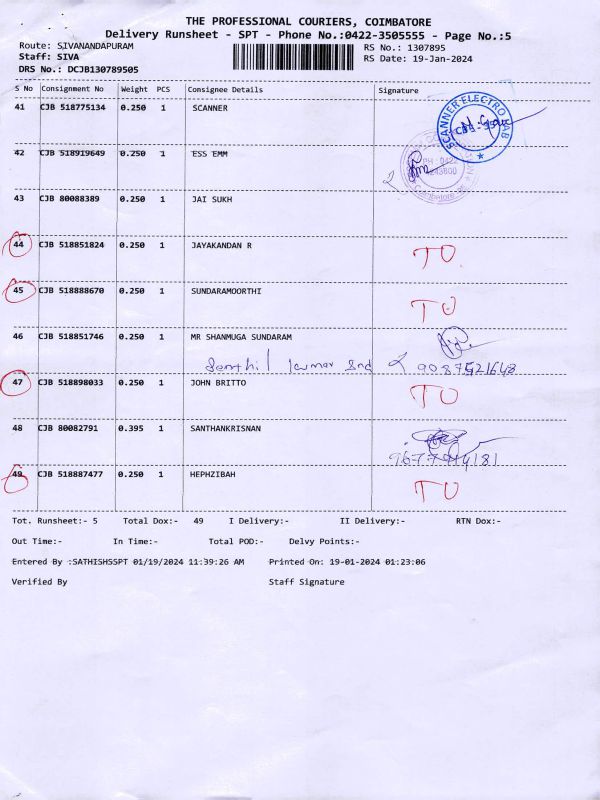 THE PROFESSIONAL COURIERS, COIMBATORE
Delivery Runsheet - SPT - Phone No.:0422-3505555 - Page No.:5
Route: SIVANANDAPURAM RS No.: 1307895
Staff: SIVA RS Date: 19-Jan-2024
DRS No.: DCJB130789505
S No Consignment No Weight PCS Consignee Details Signature
41 CJB 518775134 0.250 1 SCANNER
SCANNER ELECTRO LAB
42 CJB 518919649 0.250 1 ESS EMM
43 CJB 80088389 0.250 1 JAI SUKH
44 CJB 518851824 0.250 1 JAYAKANDAN R TO
45 CJB 518888670 0.250 1 SUNDARAMOORTHI TO
46 CJB 518851746 0.250 1 MR SHANMUGA SUNDARAM
9087521648
47 CJB 518898033 0.250 1 JOHN BRITTO TO
48 CJB 80082791 0.395 1 SANTHANKRISNAN
49 CJB 518887477 0.250 1 HEPHZIBAH TO
Tot. Runsheet:- 5 Total Dox:- 49 I Delivery:- II Delivery:- RTN Dox:-
Out Time:- In Time:- Total POD:- Delvy Points:-
Entered By :SATHISHSSPT 01/19/2024 11:39:26 AM Printed On: 19-01-2024 01:23:06
Verified By Staff Signature